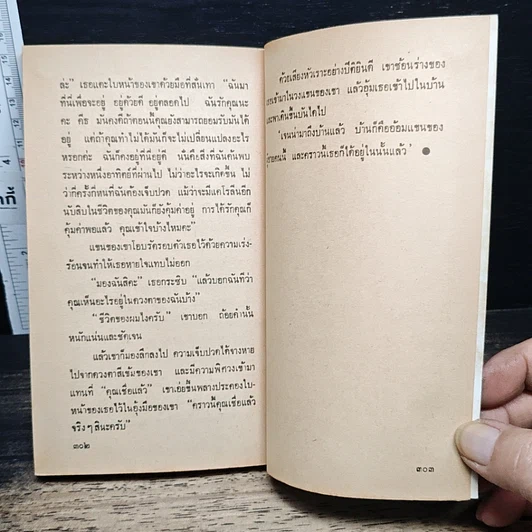 ล่ะ” เธอแตะใบหน้าของเขาด้วยมือที่สั่นเทา “ฉันมา
ที่นี่เพื่อจะอยู่ อยู่ด้วยดี อยู่ตลอดไป ฉันรักคุณนะ
คะ คีธ มันคงดีถ้าตอนนี้คุณยังสามารถยอมรับมันได้
อยู่ แต่ถ้าคุณทำไม่ได้มันก็จะไม่เปลี่ยนแปลงอะไร
หรอกค่ะ ฉันก็คงอยู่ที่นี่อยู่ดี นี่คือสิ่งที่ฉันค้นพบ
ระหว่างหนึ่งอาทิตย์ที่ผ่านไป ไม่ว่าอะไรจะเกิดขึ้น ไม่
ว่ากี่ครั้งกี่หนที่ฉันต้องเจ็บปวด แม้ว่าจะมีแคโรลีนอีก
นับสิบในชีวิตของคุณมันก็ยังคุ้มค่าอยู่ การได้รักคุณก็
คุ้มค่าพอแล้ว คุณเข้าใจบ้างไหมคะ”
แขนของเขาโอบรัดรอบตัวเธอไว้ด้วยความเร่ง-
ร้อนจนทำให้เธอหายใจแทบไม่ออก
“มองฉันสิคะ” เธอกระซิบ “แล้วบอกฉันทีว่า
คุณเห็นอะไรอยู่ในดวงตาของฉันบ้าง”
“ชีวิตของผมไงครับ” เขาบอก ถ้อยคำนั้น
หนักแน่นและชัดเจน
แล้วเขาก็มองลึกลงไป ความเจ็บปวดได้จางหาย
ไปจากดวงตาสีเข้มของเขา และมีความพิศวงเข้ามา
แทนที่ “คุณเชื่อแล้ว” เขาเอ่ยขึ้นพลางประคองใบ-
หน้าของเธอไว้ในอุ้งมือของเขา “คราวนี้คุณเชื่อแล้ว
จริงๆ สินะครับ”
๓๐๒
ด้วยเสียงหัวเราะอย่างปีติยินดี เขาช้อนร่างของ
เข้ามาในวงแขนของเขา แล้วอุ้มเธอเข้าไปในบ้าน
พาเดินขึ้นบันไดไป
‘เจนน่ามาถึงบ้านแล้ว บ้านก็คืออ้อมแขนของ
และคราวนี้เธอก็ได้อยู่ในนั้นแล้ว’ ●
๓๐๓